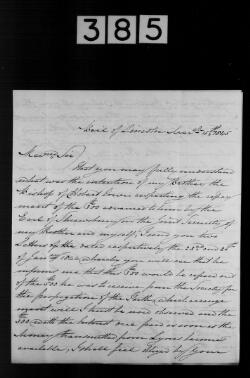 385
Dear Sir
That you may fully understand
what was the intention of my Brother the
Bishop of Hobart Town respecting the repay
ment of the £500 advanced to him by the
Earl of Shrewsbury for the joint benefit of
my Brother and myself, I send you two
Letters of the dates respectively the 23rd and 26th
of Jany 1844, whereby you will see that he
informs me that this £500 would be repaid out
of the 500 he was to receive from the Society for
the propagation of the Faith, which arrange
ment I shall be
500 with the interest once paid as soon as the
Money transmitted from Lyons becomes
available; I shall feel obliged by your